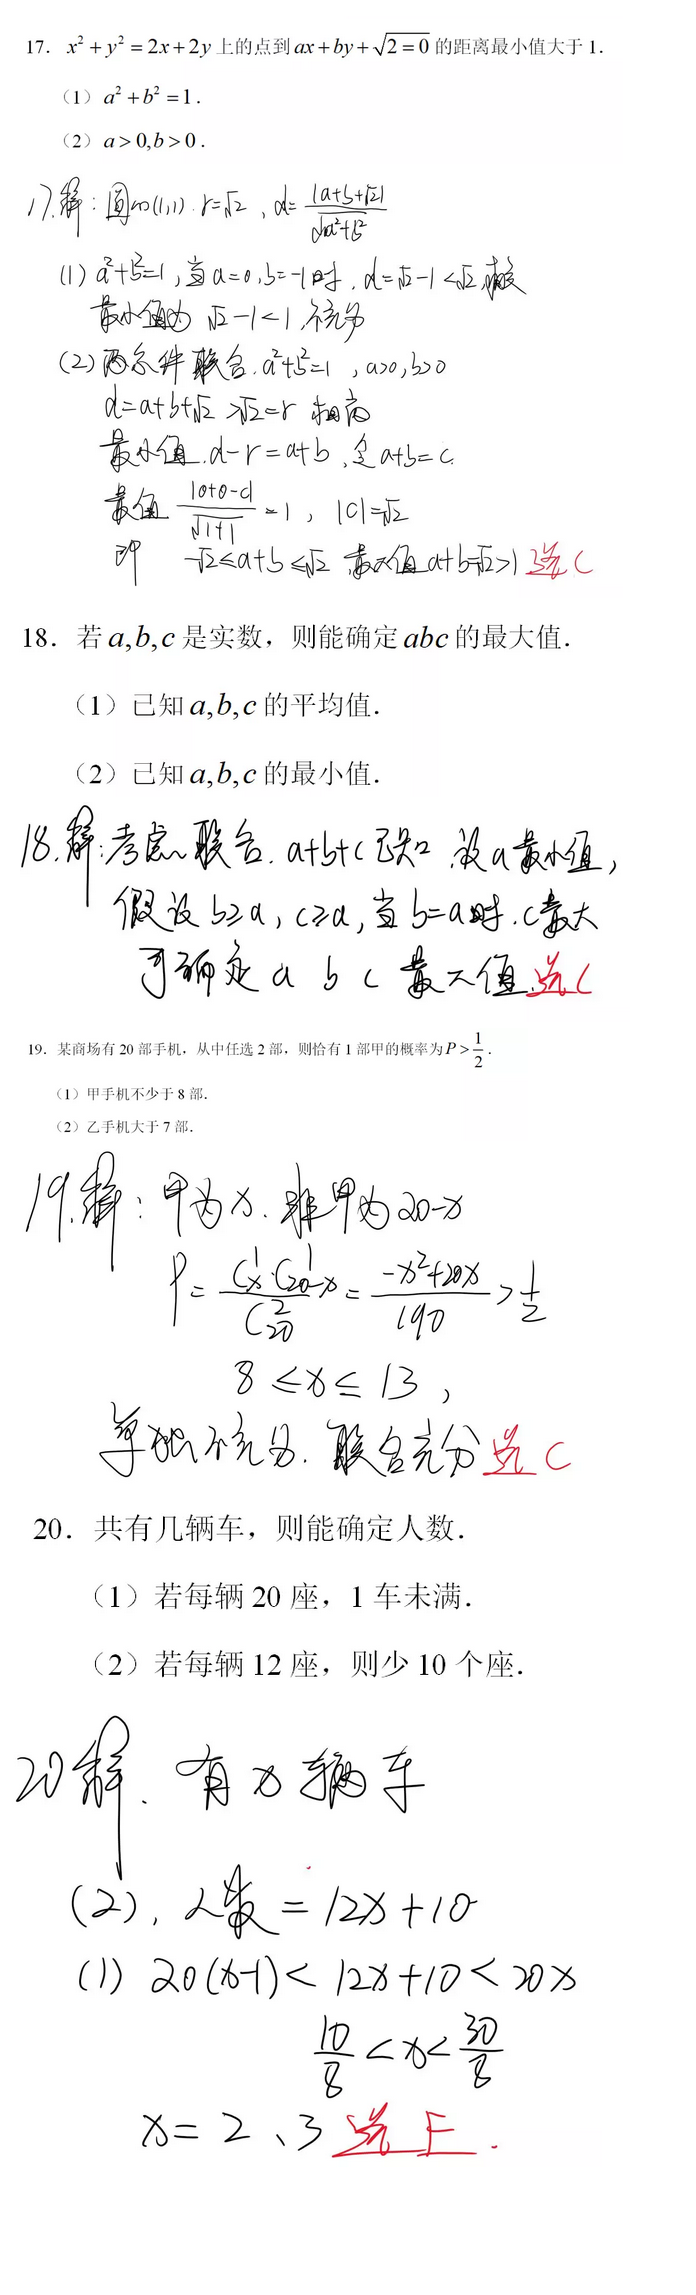 17. x² + y² = 2x + 2y 上的点到 ax + by + √(2=0) 的距离最小值大于 1.
（1） a² + b² = 1.
（2） a > 0, b > 0.
17.解：圆心(1,1). r=√2 、d= |a+b+√2| / √(a²+b²)
(1) a²+b²=1，当a=0,b=-1时，d=√2-1<√2,
最小值为 √2-1<1,不充分
(2) 两条件联合.a²+b²=1 ，a>0,b>0
d=a+b+√2 >√2=r 相离
最小值.d-r=a+b、令a+b=c.
最值 |0+0-c| / √(1+1) =1，|c|=√2
即 -√2≤a+b≤√2 最大值a+b=√2>1 选C
18. 若 a,b,c 是实数，则能确定 abc 的最大值.
（1）已知 a,b,c 的平均值.
（2）已知 a,b,c 的最小值.
18.解:考虑联合. a+b+c已知 设a最小值，
假设b≥a，c≥a，当b=a时.c最大
可确定 a b c 最大值.选C
19. 某商场有 20 部手机，从中任选 2 部，则恰有 1 部甲的概率为 P > 1/2.
（1）甲手机不少于 8 部.
（2）乙手机大于 7 部.
19.解：甲为x. 非甲为20-x
P = C¹ₓ·C¹₂₀₋ₓ / C²₂₀ = (-x²+20x) / 190 > 1/2
8 ≤ x ≤ 13，
单独不充分. 联合充分 选C
20. 共有几辆车，则能确定人数.
（1）若每辆 20 座，1 车未满.
（2）若每辆 12 座，则少 10 个座.
20解. 有 x 辆车
(2)，人数 = 12x+10
(1) 20(x-1) < 12x+10 < 20x
10/8 < x < 30/8
x = 2、3 选E.